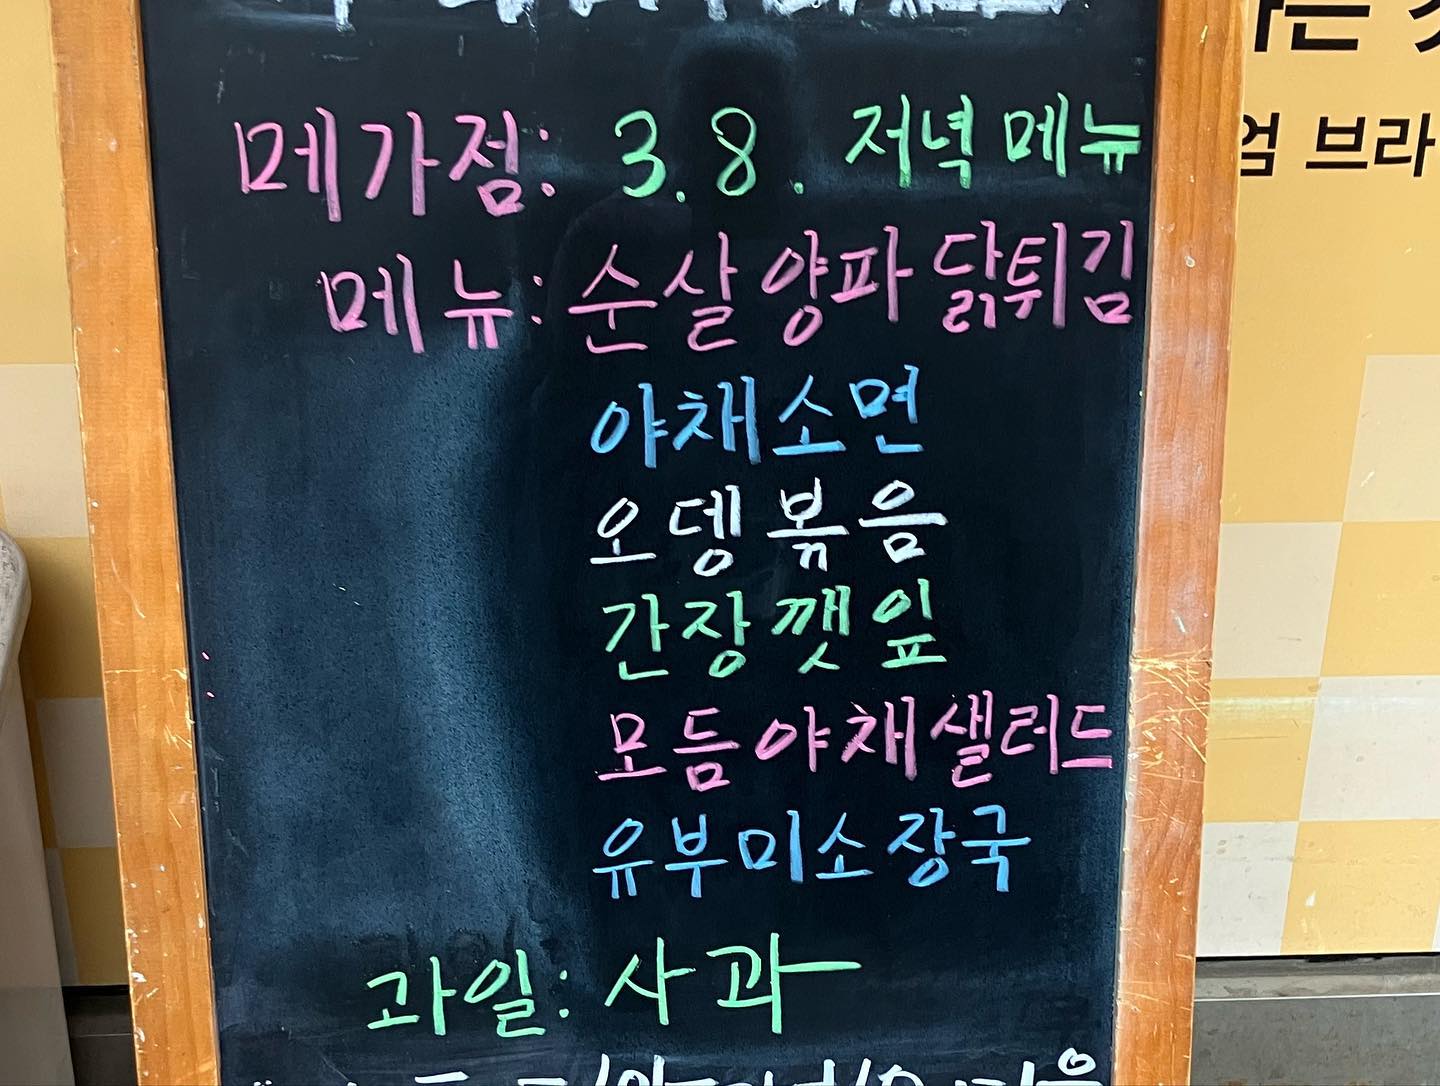 메가점: 3.8. 저녁메뉴
메뉴: 순살양파닭튀김
야채소면
오뎅볶음
간장깻잎
모듬야채샐러드
유부미소장국
과일: 사과
는
엄 브라